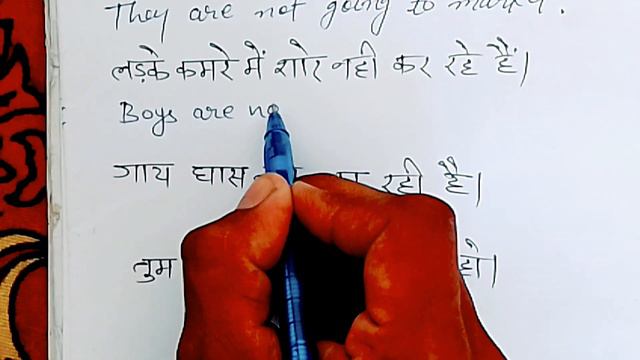 They are not going to market.
लड़के कमरे में शोर नही कर रहे हैं।
Boys are no
गाय घास रही है।
तुम हो।